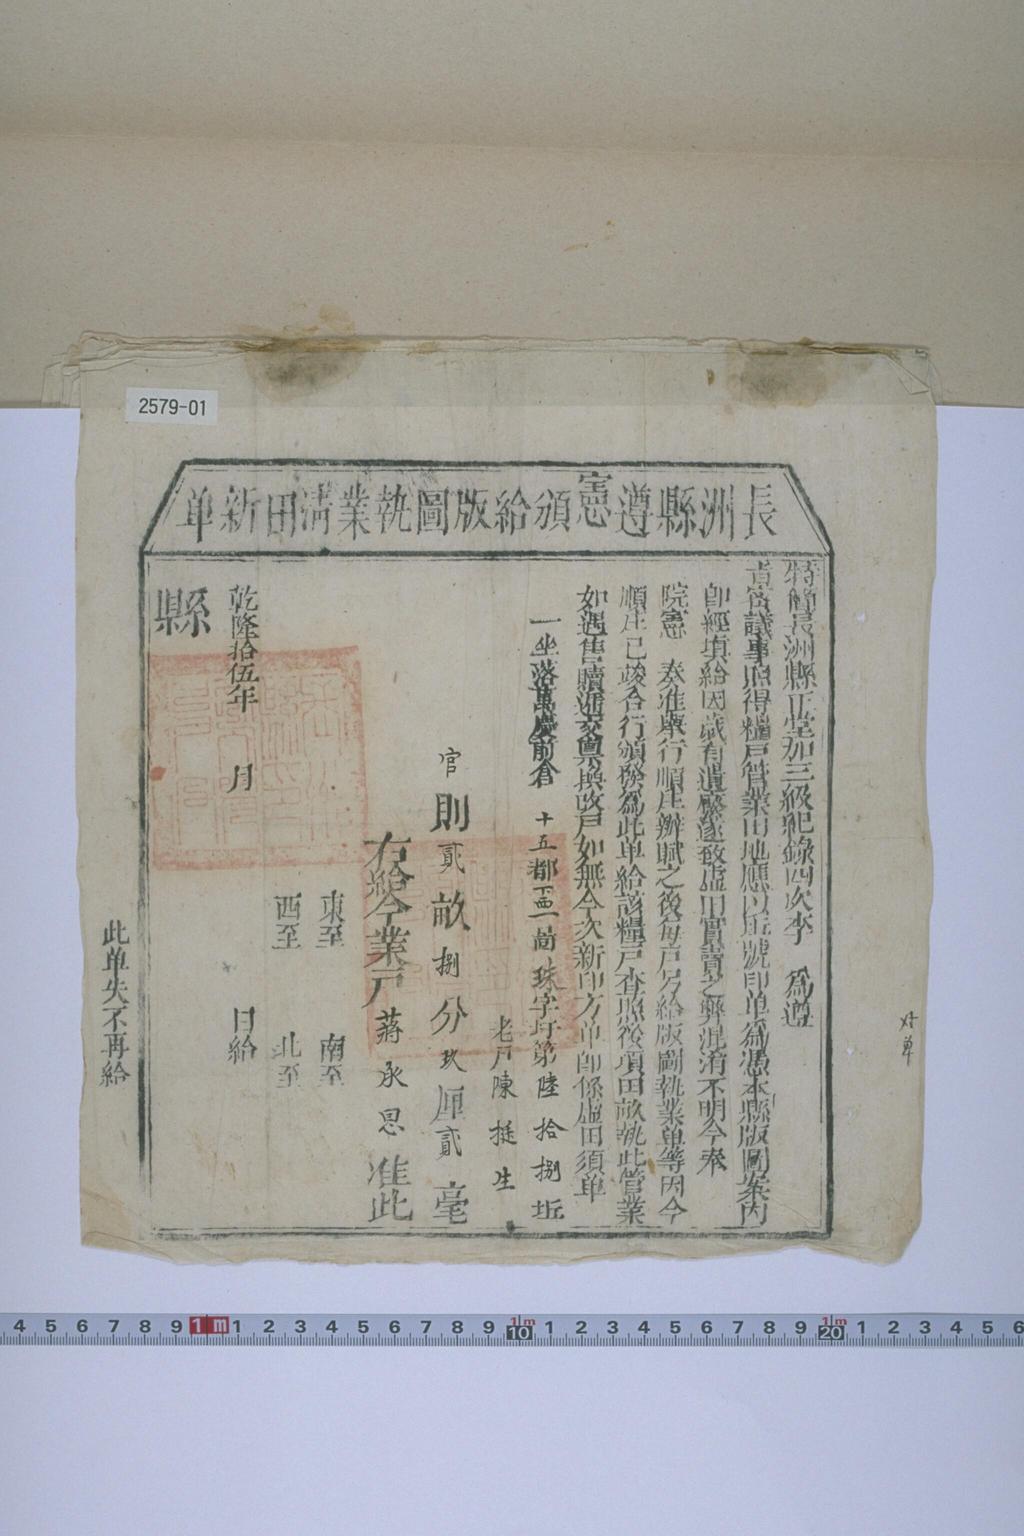 2579-01
長洲縣遵憲頒給版圖執業清田新单
特簡長洲縣正堂加三級紀錄四次李 為遵
旨密議事照得糧戶管業田地應以坵號印单為憑本縣版圖案内
即經填給因歲有遺廢遂致虛田實賣之弊混淆不明今奉
院憲 奏准舉行順庄辦賦之後每戶另給版圖執業单等因今
順庄已竣合行頒發為此单給該糧戶查照後項田畝執此管業
如遇售贖遞交輿換改戶如無今次新印方单即係虛田須单
一坐落萬慶前倉 十五都 啚珠字圩第陸拾捌坵
老戶陳挺生
官則貳畝捌分玖厘貳毫
右給今業戶蔣永思准此
東至 南至
西至 北至
乾隆拾伍年 月 日給
縣
此单失不再給
对单